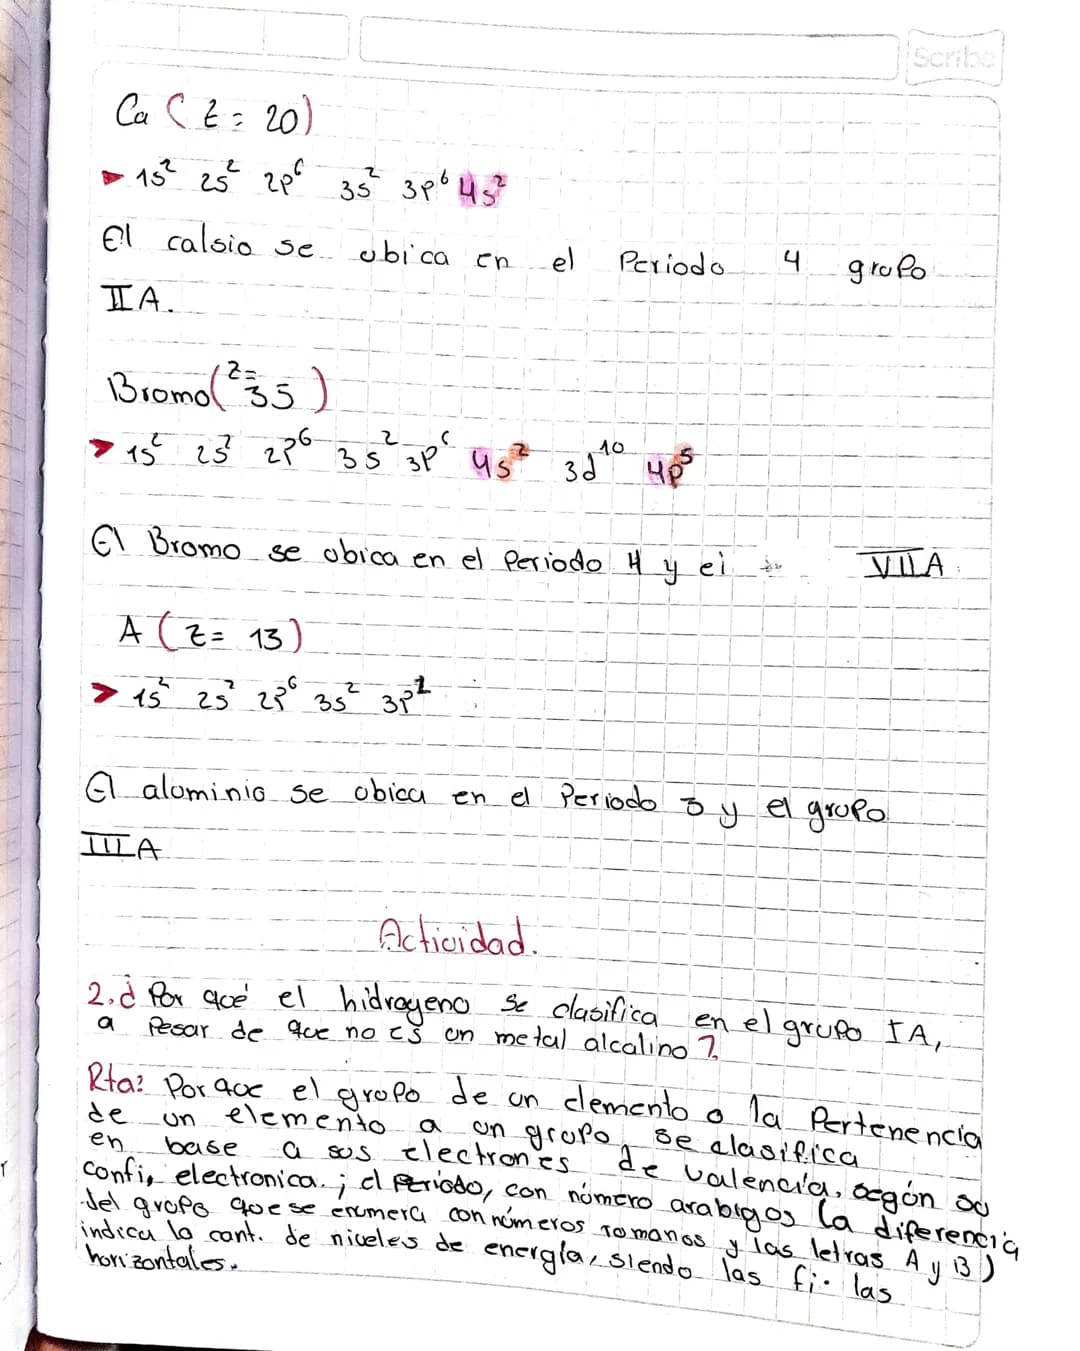 Scribe
Ca (Z= 20)
1s² 2s² 2p⁶ 3s² 3p⁶ 4s²
El calsio se ubica en el Periodo 4 grupo
IIA.
Bromo(Z=35)
1s² 2s² 2p⁶ 3s² 3p⁶ 4s² 3d¹⁰ 4p⁵
El Bromo se ubica en el Periodo 4 y el VIIA
A (Z= 13)
1s² 2s² 2p⁶ 3s² 3p¹
El aluminio se ubica en el Periodo 3 y el grupo
IIIA
Actividad.
2.¿ Por qué el hidrogeno se clasifica en el grupo IA,
a Pesar de que no es un metal alcalino?
Rta: Porque el grupo de un elemento o la Pertenencia
de un elemento a un grupo se clasifica
en base a sus electrones de valencia, según su
confi, electronica.; el Periodo, con número arabigos (a diferencia
del grupo que se enumera con números romanos y las letras A y B)
indica la cant. de niveles de energía, siendo las fi. las
horizontales.